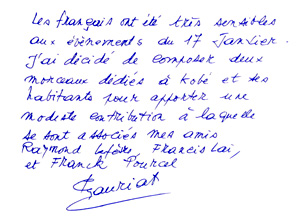 Les français ont été très sensibles
aux évènements du 17 Janvier.
J'ai décidé de composer deux
morceaux dédiés à Kobé et ses
habitants pour apporter une
modeste contribution à laquelle
se sont associés mes amis
Raymond Lefèvre, Francis Lai,
et Franck Pourcel
Mauriat